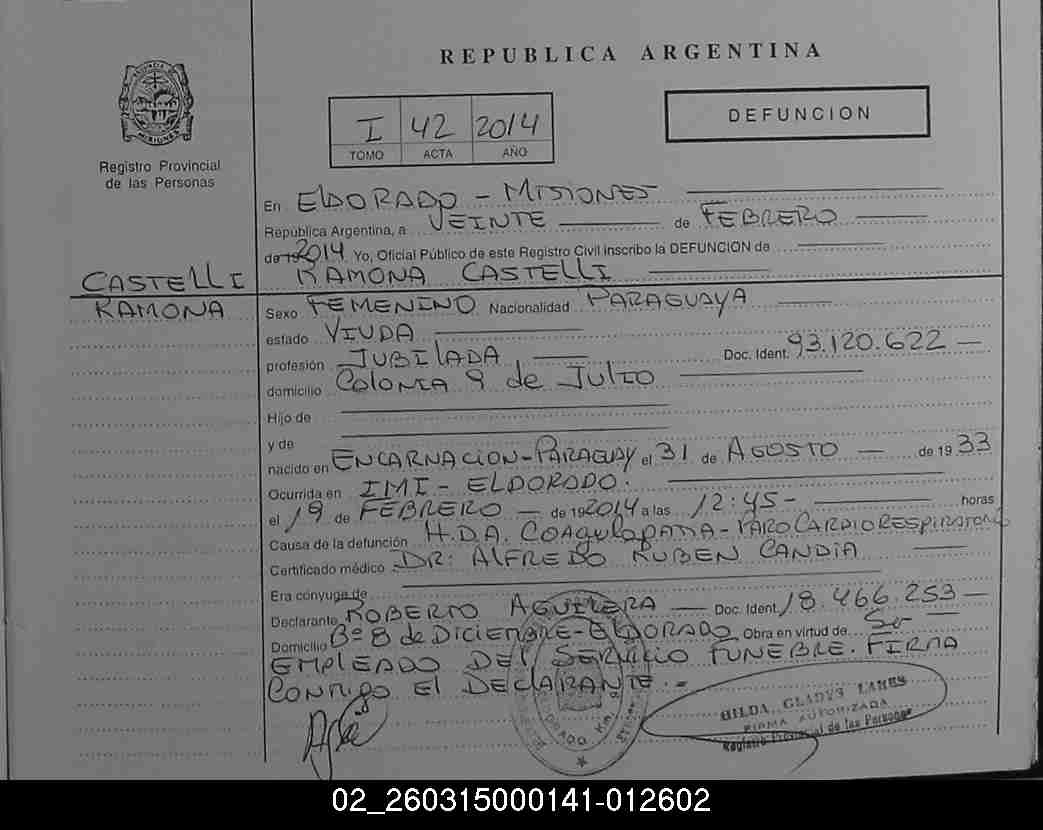 REPUBLICA ARGENTINA
PROVINCIA DE
MISIONES
Registro Provincial
de las Personas
I 42 2014
TOMO ACTA AÑO
DEFUNCION
En ELDORADO - MISIONES
República Argentina, a VEINTE de FEBRERO
de 19 2014 Yo, Oficial Público de este Registro Civil inscribo la DEFUNCION de
CASTELLI RAMONA CASTELLI
RAMONA Sexo FEMENINO Nacionalidad PARAGUAYA
estado VIUDA
profesión JUBILADA Doc. Ident. 93.120.622 —
domicilio COLONIA 9 de JULIO
Hijo de
y de
nacido en ENCARNACION-PARAGUAY el 31 de AGOSTO — de 19 33
Ocurrida en IMI - ELDORADO.
el 19 de FEBRERO — de 19 2014 a las 12:45- horas
Causa de la defunción H.D.A. COAGULOPATIA-PARO CARDIORESPIRATORIO
Certificado médico DR: ALFREDO RUBEN CANDIA
Era cónyuge de
Declarante ROBERTO AGUILERA — Doc. Ident. 18.466.253 —
Domicilio Bº 8 de DICIEMBRE-ELDORADO Obra en virtud de Ser
EMPLEADO DEL SERVICIO FUNEBRE. FIRMA
CONMIGO EL DECLARANTE.=
HILDA GLADYS
FIRMA AUTORIZADA
Registro Provincial de las Personas
ELDORADO Km.
02_260315000141-012602